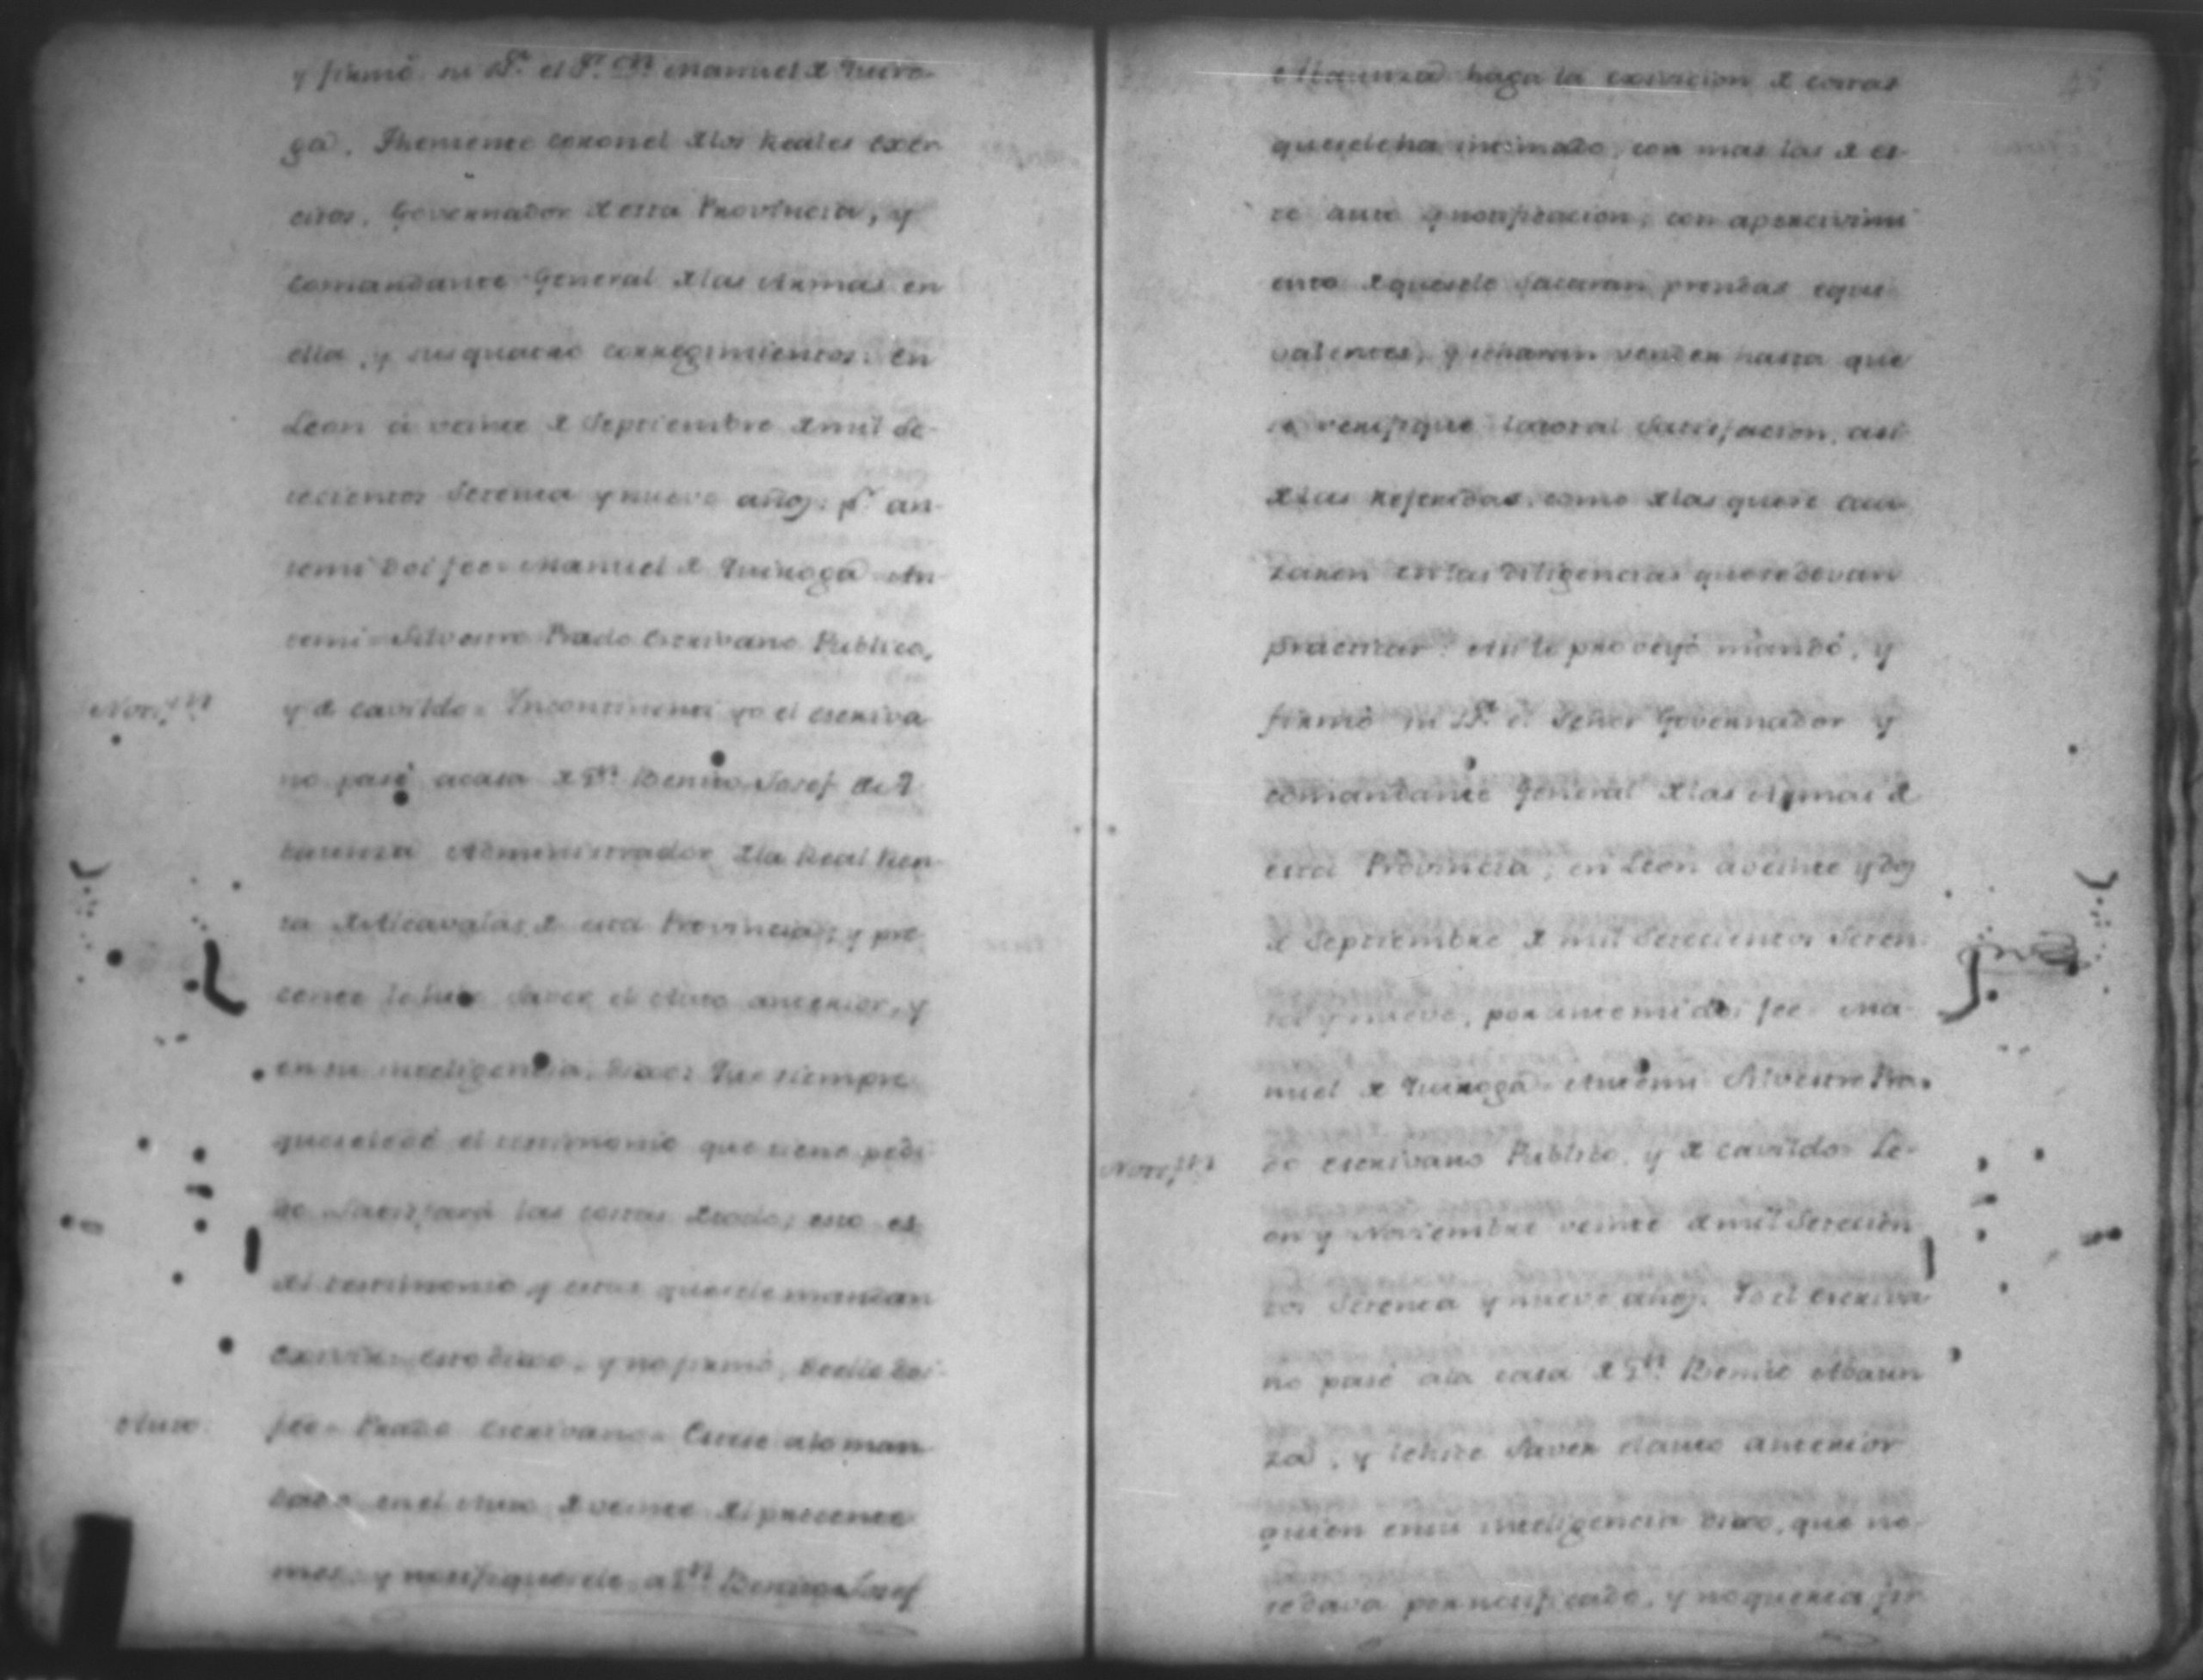 y firmó su Sª. el Sr. Dn. Manuel de Quiro-
ga. Theniente Coronel de los Reales Exer-
citos, Governador de esta Provincia, y
Comandante General de las Armas en
ella, y sus quatro corregimientos. En
Leon á veinte de Septiembre de mil Se-
tecientos Setenta y nueve años. pr. an-
temi doi fee = Manuel de Quiroga = An-
temi = Silvestre Prado Escrivano Publico,
Noton.
y de cavildo = Incontinenti yo el escriva-
no pasé a casa de Dn. Benito Josef de A
baunza Administrador de la Real Ren-
ta de Alcavalas de esta Provincia; y pre
cente le hise Saver el Auto anterior, y
en su inteligencia, dixo: Que siempre
que se le dé el testimonio que tiene pedi-
do Satisfará las costas de todo; esto es
del testimonio y estas que se le mandan
exivir: esto dixo, y no firmó, de ello doi
Auto
fee = Prado Escrivano = Estese a lo man-
dado en el Auto de veinte del precente
mes, y notifiquesele a Dn. Benito Josef
Abaunza haga la exivicion de costas
que se le ha intimado, con mas las de es-
te auto y notificacion, con apercivimi
ento de que se le sacaran prendas equi-
valentes, y se haran vender hasta que
se verifique la total Satisfacion, asi
de las referidas, como de las que se cau
zaren en las diligencias que se devan
practicar. Asi lo proveyó mandó, y
firmó su Sª. el Señor Governador y
comandante General de las Armas de
esta Provincia, en Leon a veinte y dos
de Septiembre de mil Setecientos Seten
ta y nueve, por ante mi doi fee = Ma-
nuel de Quiroga = Antemi Silvestre Pra-
Noton.
do escrivano Publico, y de cavildo = Le-
on y Noviembre veinte de mil Setecien
tos Setenta y nueve años. Yo el escriva
no pasé a la casa de Dn. Benito Abaun
za, y le hise Saver el auto anterior
quien en su inteligencia dixo, que no
se dava por notificado, y no queria fir